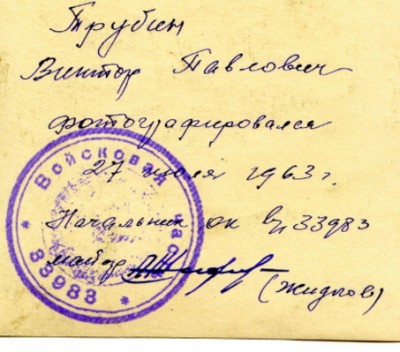 Трубин
Виктор Павлович
фотографировался
27 июля 1963 г.
Начальник ок в/ч 33983
майор
(Жидков)
* Войсковая часть * 33983